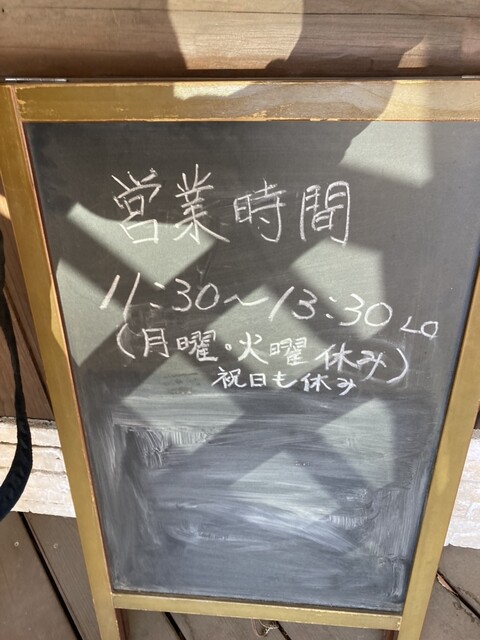 営業時間
11:30～13:30 LO
(月曜・火曜 休み)
祝日も休み